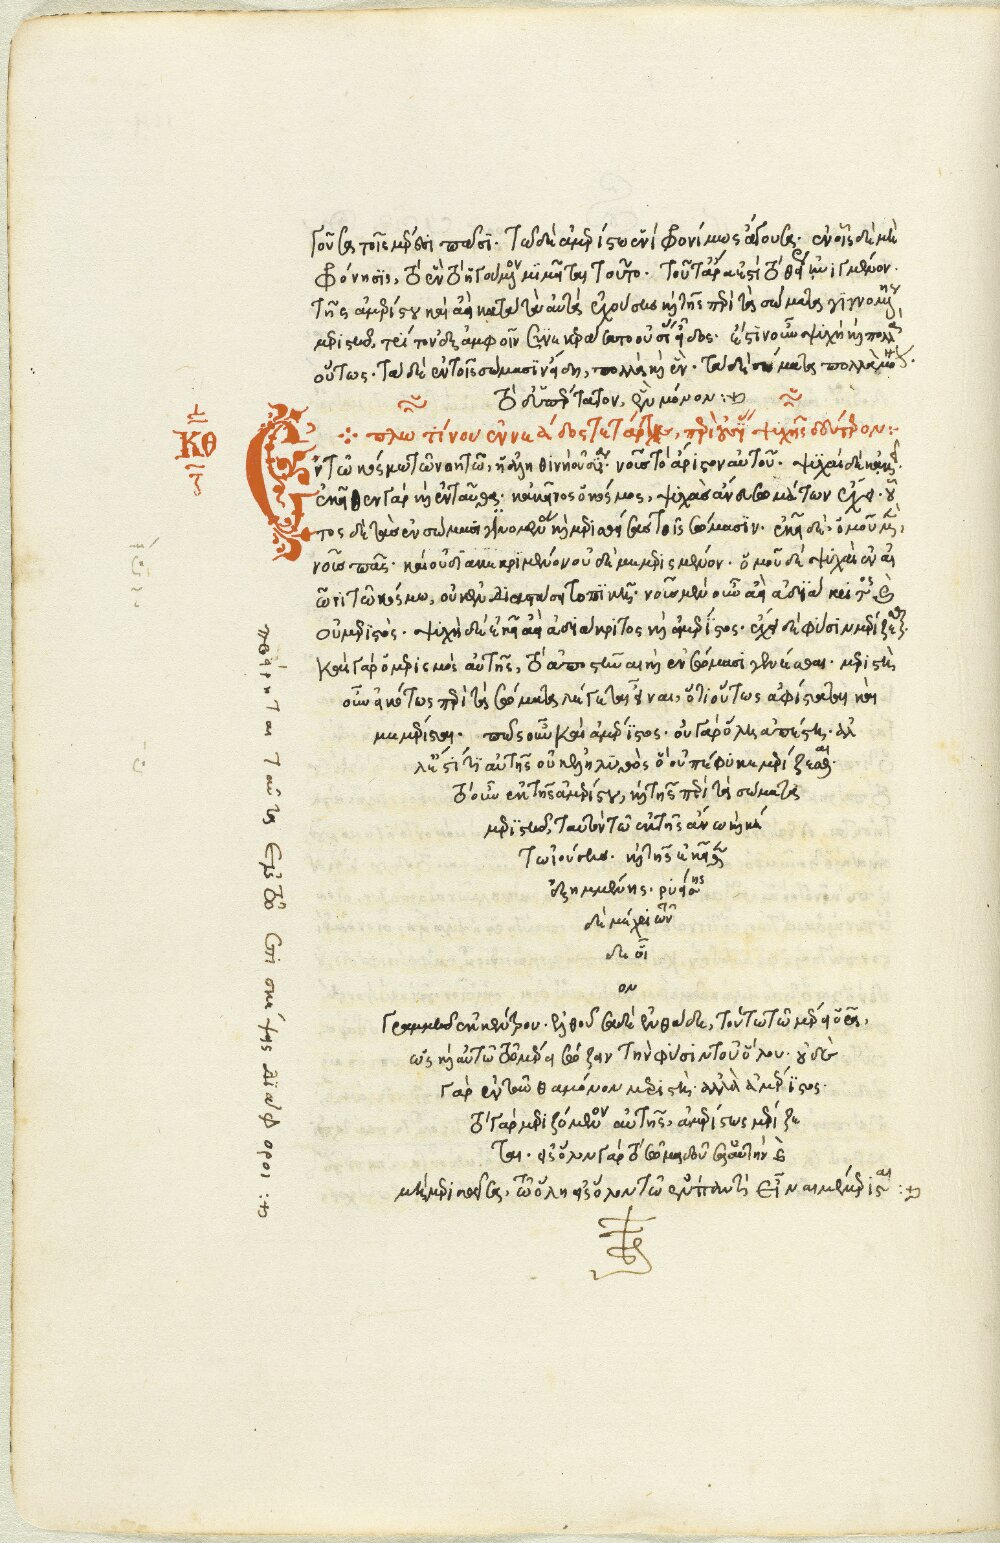 γοῦσα τοῖς μέρεσι πᾶσι· τῷ δὲ ἀμερίστῳ ἑνὶ φρονίμως ἄγουσα· ἐν οἷς δὲ μὴ
φρόνησις, τὸ ἓν τὸ ἡγούμενον μιμεῖται τοῦτο· τοῦτ' ἄρα ἐστὶ τὸ θείως ἠνιγμένον·
τῆς ἀμερίστου καὶ ἀεὶ κατὰ τὰ αὐτὰ ἐχούσης καὶ τῆς περὶ τὰ σώματα γιγνομένης
μεριστῆς, τρίτον ἐξ ἀμφοῖν συνεκεράσατο οὐσίας εἶδος· ἔστιν οὖν ψυχὴ ἓν καὶ πολλὰ
οὕτως· τὰ δὲ ἐν τοῖς σώμασιν εἴδη, πολλὰ καὶ ἕν· τὰ δὲ σώματα πολλὰ μόνον·
τὸ δ' ὑπέρτατον, ἓν μόνον :
ΚΘ
πλωτίνου ἐννεάδος τετάρτης, περὶ οὐσίας ψυχῆς δεύτερον :
Ἐν τῷ κόσμῳ τῷ νοητῷ, ἡ ἀληθινὴ οὐσία· νοῦς τὸ ἄριστον αὐτοῦ· ψυχαὶ δὲ κἀκεῖ·
ἐκεῖθεν γὰρ καὶ ἐνταῦθα· κἀκεῖνος ὁ κόσμος, ψυχὰς ἄνευ σωμάτων ἔχει· οὗ
τος δὲ τὰς ἐν σώμασι γινομένας καὶ μερισθείσας τοῖς σώμασιν· ἐκεῖ δὲ· ὁμοῦ μὲν,
νοῦς πᾶς· καὶ οὐ διακεκριμένον οὐδὲ μεμερισμένον· ὁμοῦ δὲ ψυχαὶ ἐν αἰ
ῶνι τῷ κόσμῳ, οὐκ ἐν διαστάσει τοπικῇ· νοῦς μὲν οὖν ἀεὶ ἀδιάκριτος καὶ
οὐ μεριστός· ψυχὴ δὲ ἐκεῖ ἀεὶ ἀδιάκριτος καὶ ἀμέριστος· ἔχει δὲ φύσιν μερίζεσθαι·
καὶ γὰρ ὁ μερισμὸς αὐτῆς, τὸ ἀποστῆναι καὶ ἐν σώματι γενέσθαι· μεριστὴ
οὖν εἰκότως περὶ τὰ σώματα λέγεται εἶναι, ὅτι οὕτως ἀφίσταται καὶ
μεμέρισται· πῶς οὖν καὶ ἀμέριστος· οὐ γὰρ ὅλη ἀπέστη· ἀλλ
' ἔστί τι αὐτῆς οὐκ ἐληλυθὸς ὃ οὐ πέφυκε μερίζεσθαι·
τὸ οὖν ἐκ τῆς ἀμερίστου, καὶ τῆς περὶ τὰ σώματα
μεριστῆς, ταυτὸν τῷ ἐκ τῆς ἄνω καὶ κά
τω ἰούσης· καὶ τῆς ἐκεῖθεν
ἐξημμένης· ῥυείσης
δὲ μέχρι τῶν
δε οἷ
ον
γραμμῆς ἐκ κέντρου· ἐλθοῦσα δὲ ἐνθάδε, τούτῳ τῷ μέρει ὁρᾷ,
ᾧ καὶ αὐτῷ τῷ μέρει σώζει τὴν φύσιν τοῦ ὅλου· οὐδὲ
γὰρ ἐνταῦθα μόνον μεριστὴ· ἀλλὰ καὶ ἀμέριστος·
τὸ γὰρ μεριζόμενον αὐτῆς, ἀμερίστως μερίζε
ται· εἰς ὅλον γὰρ τὸ σῶμα δοῦσα αὑτὴν καὶ
μὴ μερισθεῖσα, τῷ ὅλη εἰς ὅλον τῷ ἐν παντὶ εἶναι μεμέρισται :
ταῦτα